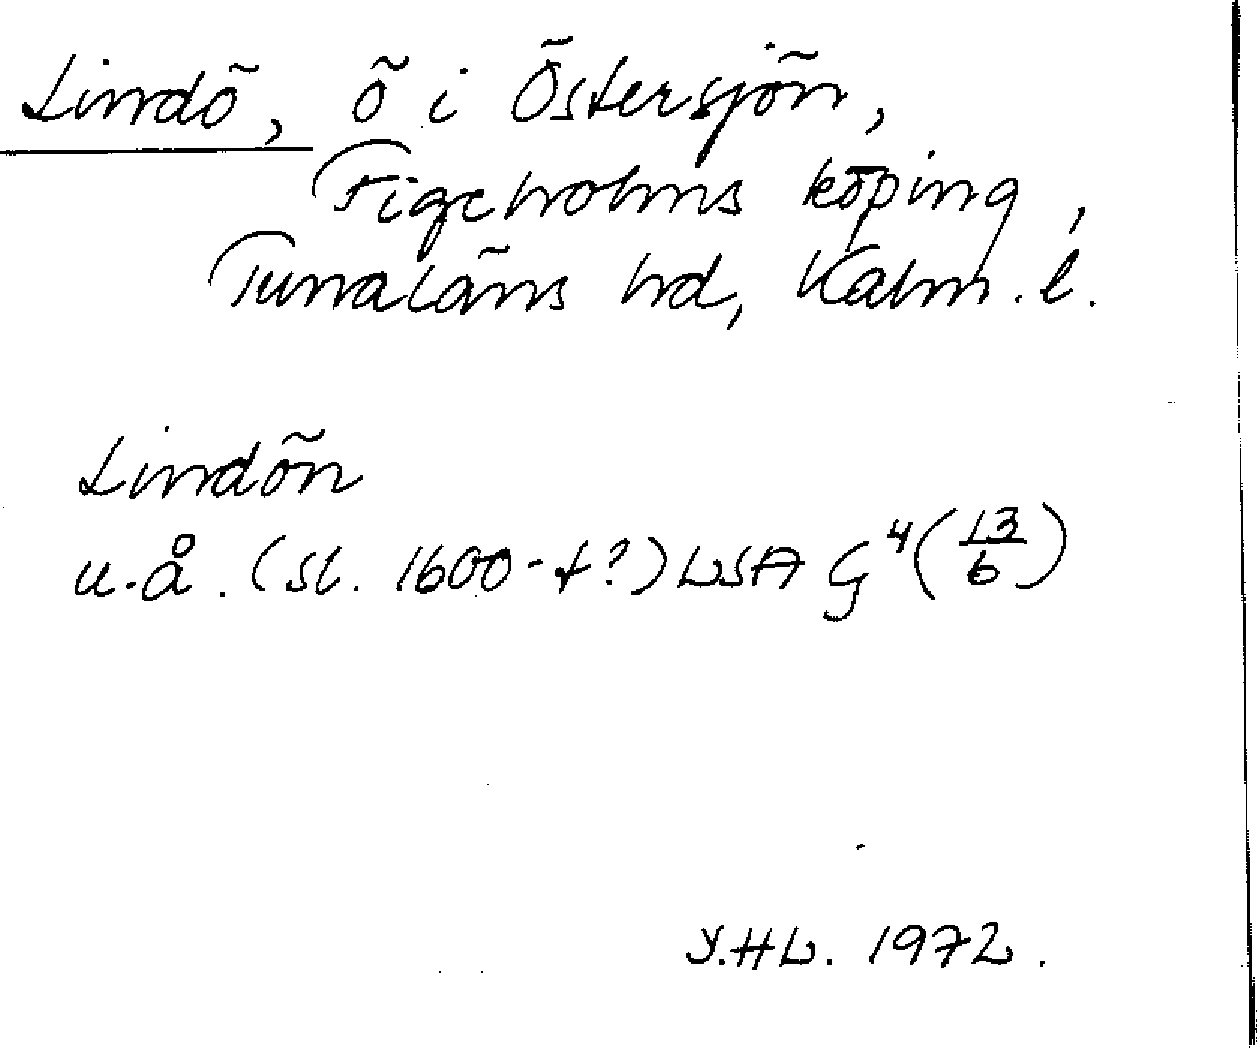 Lindö, ö i Östersjön,
Figeholms köping,
Tunaläns hd, Kalm. l.
Lindön
u.å. (sl. 1600-t?) LSA G⁴(13/6)
Y.HL. 1972.